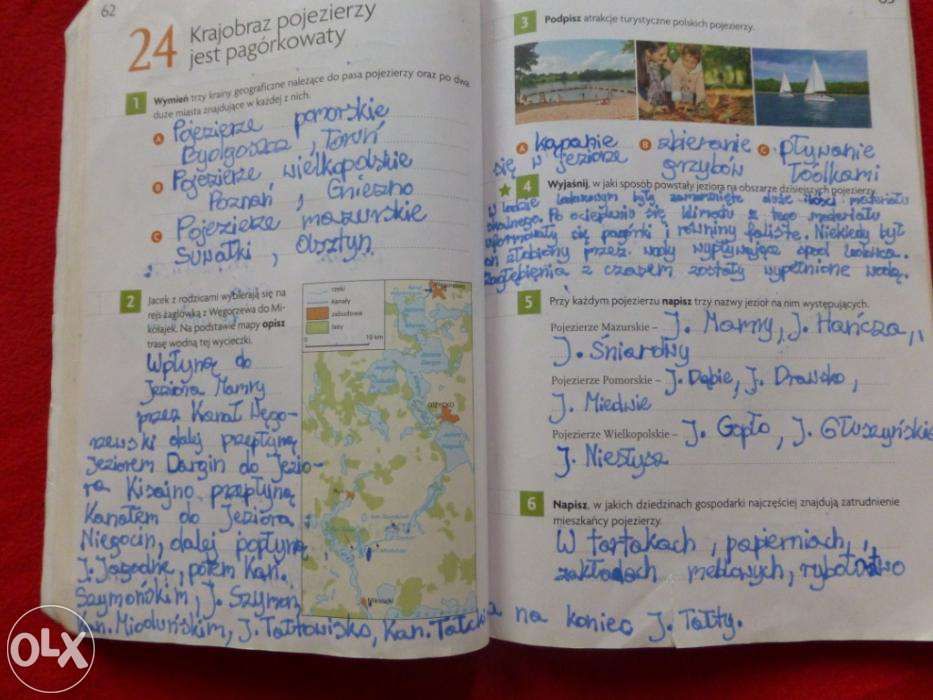 62
24 Krajobraz pojezierzy
jest pagórkowaty
1 Wymień trzy krainy geograficzne należące do pasa pojezierzy oraz po dwa
duże miasta znajdujące w każdej z nich.
A Pojezierze pomorskie
Bydgoszcz, Toruń
B Pojezierze wielkopolskie
Poznań, Gniezno
C Pojezierze mazurskie
Suwałki, Olsztyn
2 Jacek z rodzicami wybierają się na
rejs żaglówką z Węgorzewa do Mi-
kołajek. Na podstawie mapy opisz
trasę wodną tej wycieczki.
Wpłyną do
Jeziora Mamry
przez Kanał Węgo-
rzewski dalej przepłyną
jeziorem Dargin do Jezio-
ra Kisajno przepłyną
Kanałem do Jeziora
Niegocin, dalej popłyną
J. Jagodne, potem Kan.
Szymońskim, J. Szymon
Kan. Mioduńskim, J. Tałtowisko, Kan. Tałcki a na koniec J. Tałty.
rzeki
kanały
zabudowa
lasy
0 10 km
GIŻYCKO
Mikołajki
3 Podpisz atrakcje turystyczne polskich pojezierzy.
A kąpanie
się w jeziorze
B zbieranie
grzybów
C pływanie
łódkami
4 Wyjaśnij, w jaki sposób powstały jeziora na obszarze dzisiejszych pojezierzy.
W lodzie lodowcowym były zamarznięte duże ilości materiału
skalnego. Po ociepleniu się klimatu z tego materiału
uformowały się pagórki i równiny faliste. Niekiedy był
on żłobiony przez wody wypływające spod lodowca.
Zagłębienia z czasem zostały wypełnione wodą.
5 Przy każdym pojezierzu napisz trzy nazwy jezior na nim występujących.
Pojezierze Mazurskie – J. Mamry, J. Hańcza,
J. Śniardwy
Pojezierze Pomorskie – J. Dąbie, J. Drawsko,
J. Miedwie
Pojezierze Wielkopolskie – J. Gopło, J. Głuszyńskie
J. Niesłysz
6 Napisz, w jakich dziedzinach gospodarki najczęściej znajdują zatrudnienie
mieszkańcy pojezierzy.
W tartakach, papierniach,
zakładach meblowych, rybołóstwo
OLX